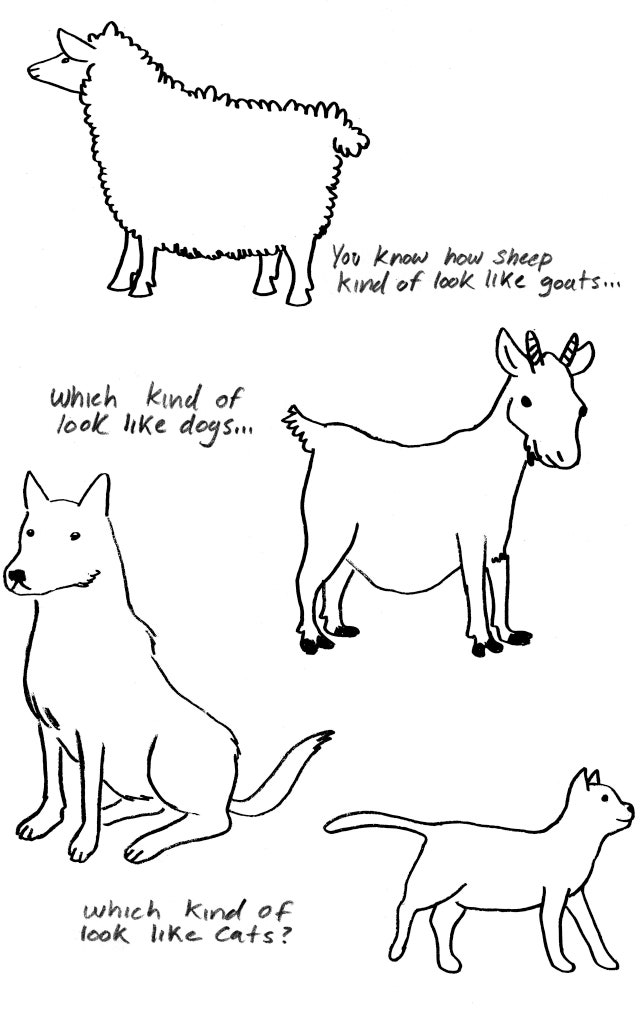 You know how sheep
kind of look like goats...
which kind of
look like dogs...
which kind of
look like cats?